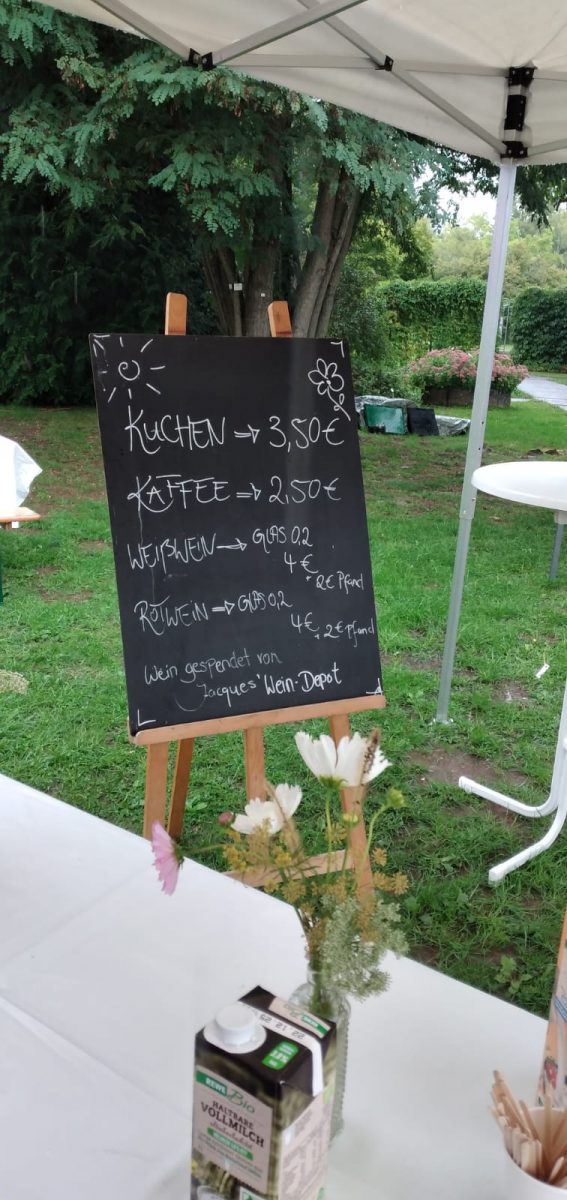 KUCHEN ⇒ 3,50€
KAFFEE ⇒ 2,50€
WEIßWEIN → GLAS 0,2
4 €
+ 2€ Pfand
ROTWEIN ⇒ GLAS 0,2
4€ + 2€ Pfand
Wein gespendet von
Jacques' Wein-Depot
REWE Bio
HALTBARE
VOLLMILCH